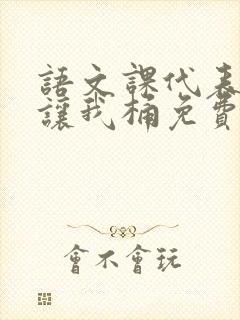 語文課代表
讓我桶免費
會不會玩